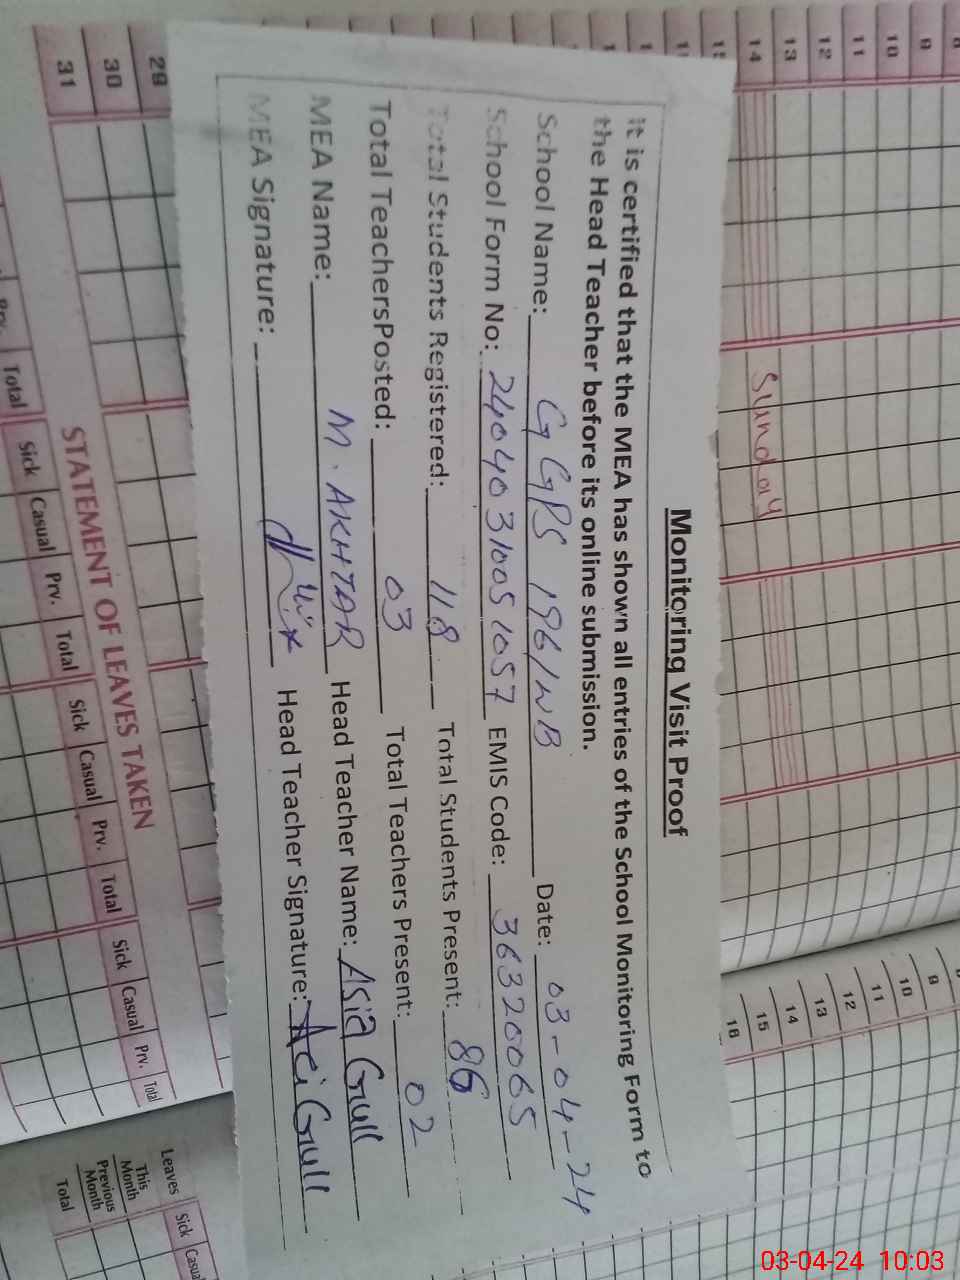 Monitoring Visit Proof
it is certified that the MEA has shown all entries of the School Monitoring Form to
the Head Teacher before its online submission.
School Name: GGPS 196/WB Date: 03-04-24
School Form No: 24040310051057 EMIS Code: 36320065
Total Students Registered: 118 Total Students Present: 86
Total TeachersPosted: 03 Total Teachers Present: 02
MEA Name: M. AKHTAR Head Teacher Name: Asia Gull
MEA Signature: Head Teacher Signature: Gull
Sunday
8 9 10 11 12 13 14
29
30
31
STATEMENT OF LEAVES TAKEN
Total Sick Casual Prv. Total Sick Casual Prv. Total Sick Casual Prv. Total
9 10 11 12 13 14 15 16
Leaves Sick
This Month
Previous Month
Total
03-04-24 10:03